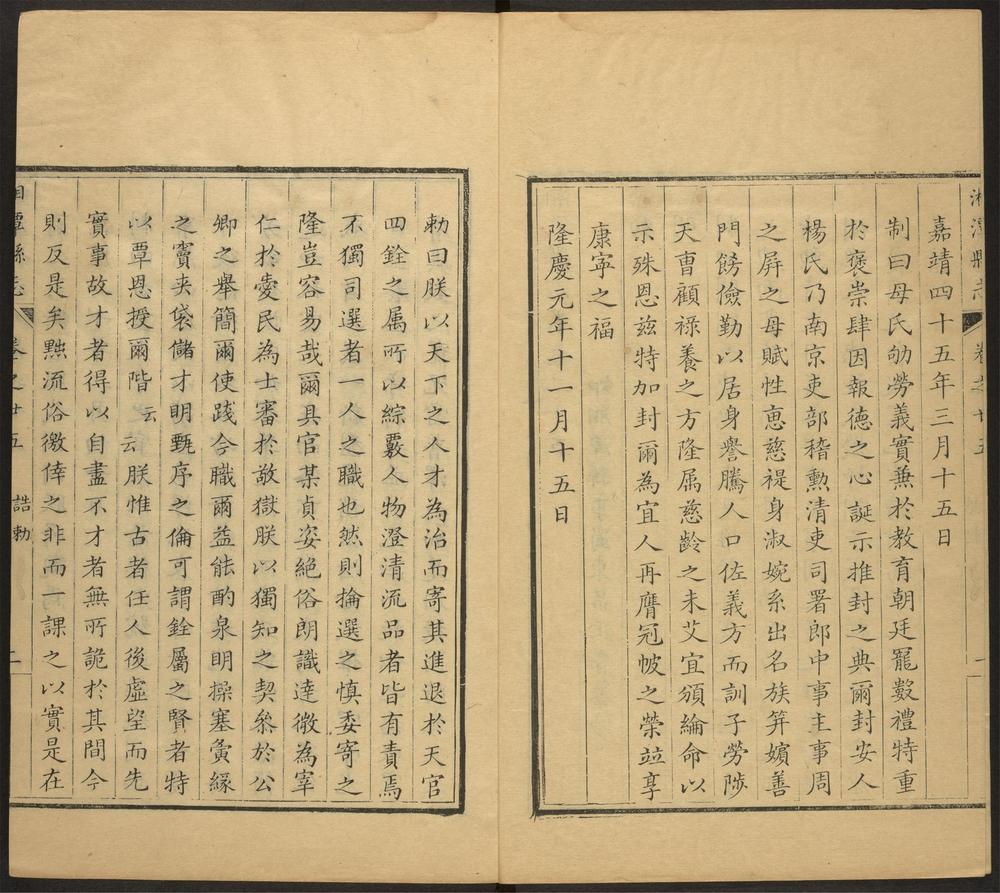 湘潭縣志 卷之廿五
嘉靖四十五年三月十五日
制曰母氏劬勞義實兼於教育朝廷寵數禮特重
於褒崇肆因報德之心誕示推封之典爾封安人
楊氏乃南京吏部稽勲清吏司署郎中事主事周
之屏之母賦性恵慈禔身淑婉系出名族笄嬪善
門餝儉勤以居身譽騰人口佐義方而訓子勞陟
天曹顧祿養之方隆属慈齡之未艾宜頒綸命以
示殊恩茲特加封爾為宜人再膺冠帔之榮竝享
康寧之福
隆慶元年十一月十五日
勅曰朕以天下之人才為治而寄其進退於天官
四銓之属所以綜覈人物澄清流品者皆有責焉
不獨司選者一人之職也然則掄選之慎委寄之
隆豈容易哉爾具官某貞姿絕俗朗識達微為宰
仁於愛民為士審於敬獄朕以獨知之契叅於公
卿之舉簡爾使踐今職爾益能酌泉明操塞夤緣
之竇夹袋儲才明甄序之倫可謂銓屬之賢者特
以覃恩授爾階云云朕惟古者任人後虛望而先
實事故才者得以自盡不才者無所詭於其間今
則反是矣黜流俗徼倖之非而一課之以實是在
湘潭縣志 卷之廿五 誥勅 二